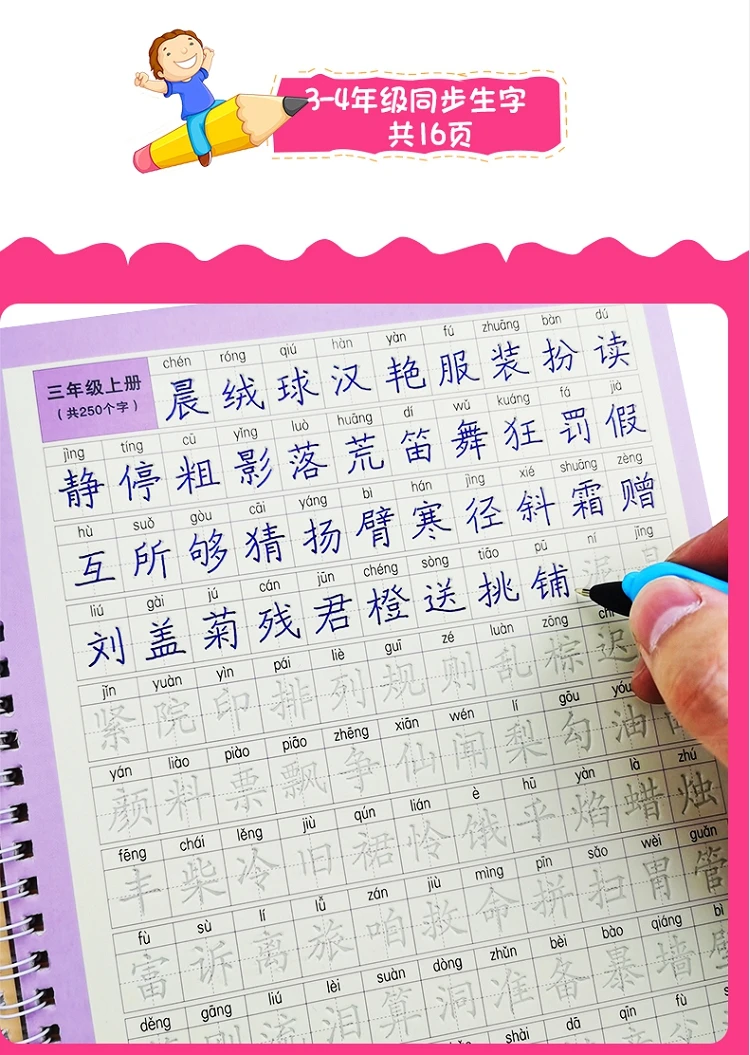 3-4年级同步生字
共16页
三年级上册
(共250个字)
chén róng qiú hàn yàn fú zhuāng bàn dú
晨 绒 球 汉 艳 服 装 扮 读
jìng tíng cū yǐng luò huāng dí wǔ kuáng fá jiǎ
静 停 粗 影 落 荒 笛 舞 狂 罚 假
hù suǒ gòu cāi yáng bì hán jìng xié shuāng zèng
互 所 够 猜 扬 臂 寒 径 斜 霜 赠
liú gài jú cán jūn chéng sòng tiāo pū ní jīng
刘 盖 菊 残 君 橙 送 挑 铺
jǐn yuàn yìn pái liè guī zé luàn zōng
紧 院 印 排 列 规 则 乱 棕 迟
yán liào piào piāo zhēng xiān wén lí gōu yóu
颜 料 票 飘 争 仙 闻 梨 勾 油
fēng chái lěng jiù qún lián è hū yàn là zhú
丰 柴 冷 旧 裙 怜 饿 乎 焰 蜡 烛
fù sù lí lǚ zán jiù mìng pīn sǎo wèi guǎn
富 诉 离 旅 咱 救 命 拼 扫 胃 管
děng gāng liú lèi suàn dòng zhǔn bèi bào qiáng bì
流 泪 算 洞 准 备 暴 墙 壁
shài dā qīn fù